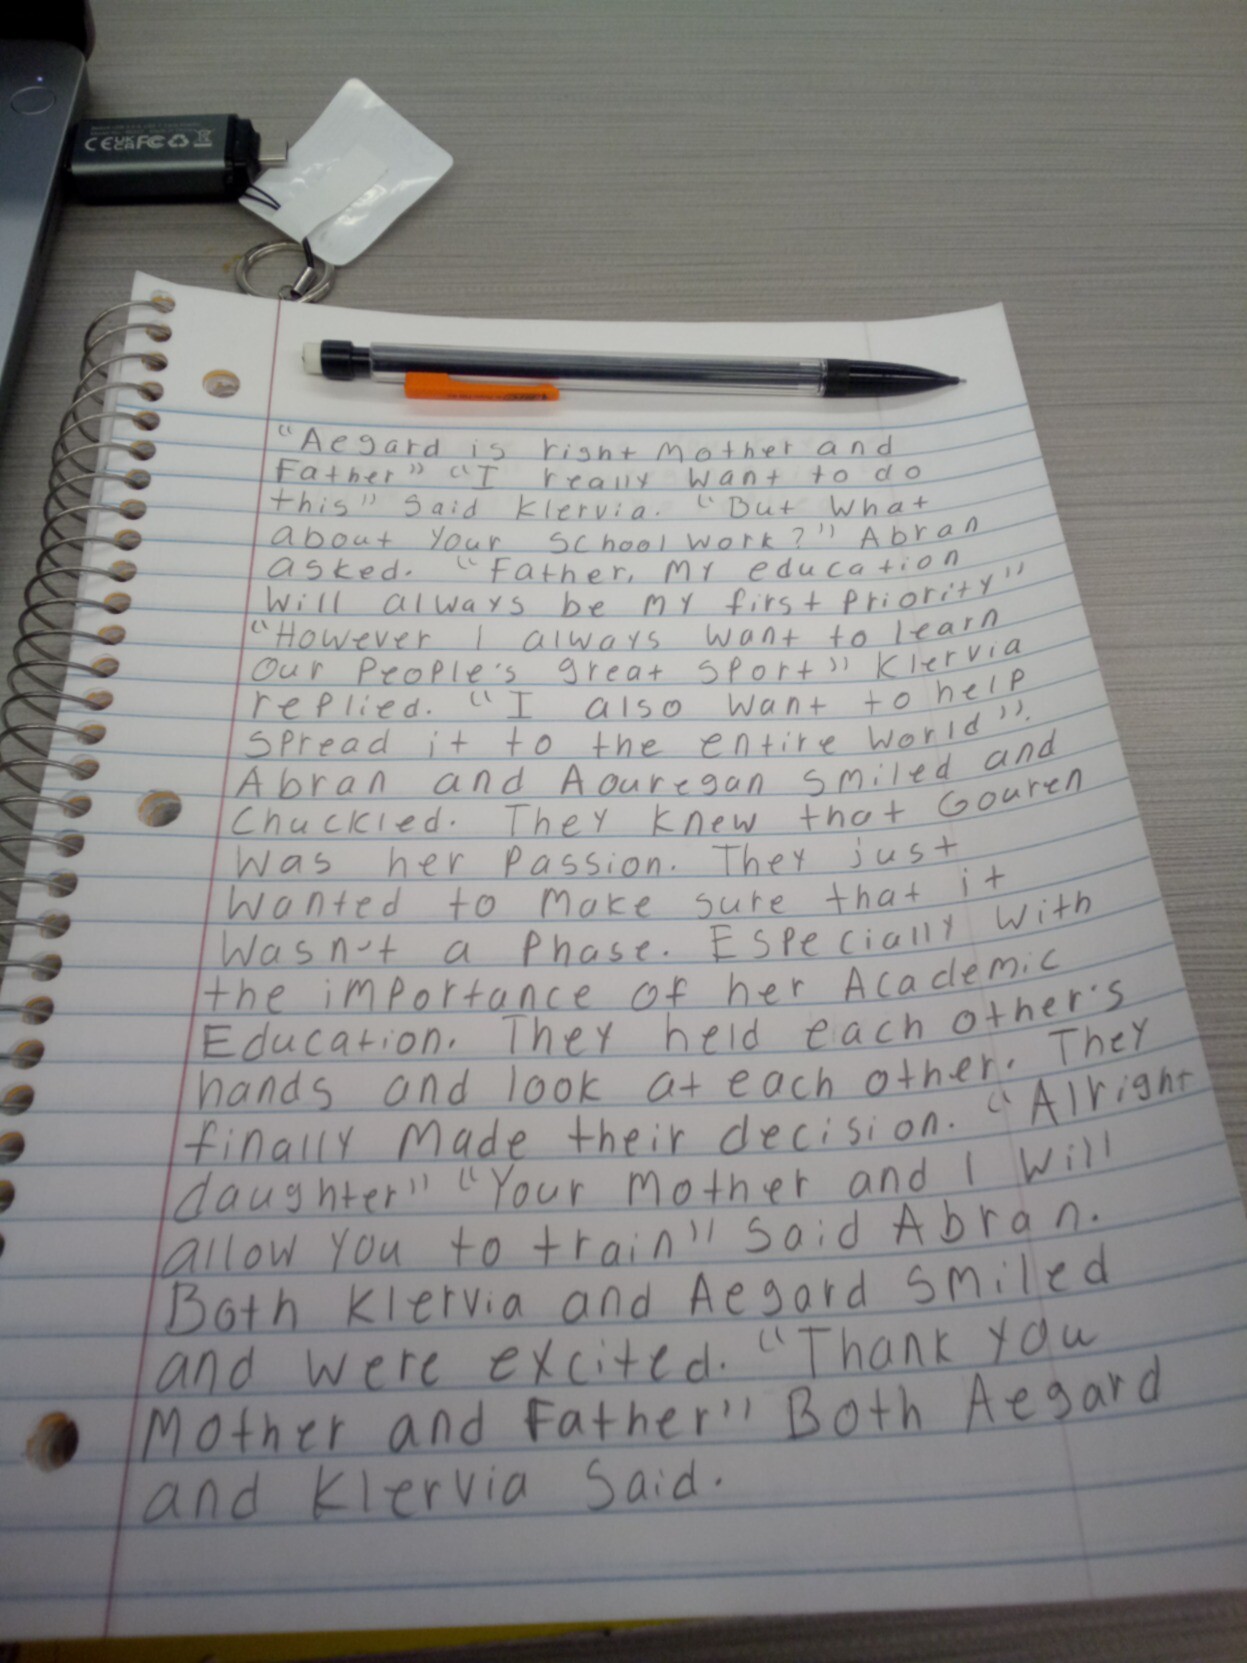 CE UK CA FC
"Aegard is right Mother and
Father" "I really want to do
this" Said Klervia. "But What
about Your School Work?" Abran
asked. "Father, My education
Will always be My first Priority"
"However I always Want to learn
our PeoPle's great SPort" Klervia
rePlied. "I also Want to helP
SPread it to the entire World".
Abran and Aouregan Smiled and
Chuckled. They Knew that Gouren
Was her Passion. They just
Wanted to Make sure that it
Wasn't a Phase. ESPecially With
the iMPortance of her Academic
Education. They held each other's
hands and look at each other. They
finally Made their decision. "Alright
daughter" "Your Mother and I Will
allow You to train" Said Abran.
Both Klervia and Aegard Smiled
and were excited. "Thank You
Mother and Father" Both Aegard
and Klervia Said.